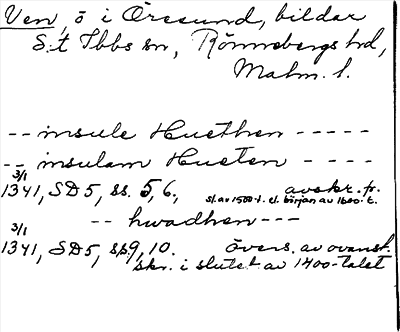 Ven, ö i Öresund, bildar
S:t Ibbs sn, Rönnebergs hd,
Malm. l.
-- insule Huethen -----
-- insulam Hueten ----
3/1
1341, SD5, ss. 5, 6, avskr. fr.
sl. av 1500-t. el. början av 1600-t.
-- hwadhen ---
3/1
1341, SD5, ss. 9, 10. övers. av ovanst.
skr. i slutet av 1400-talet